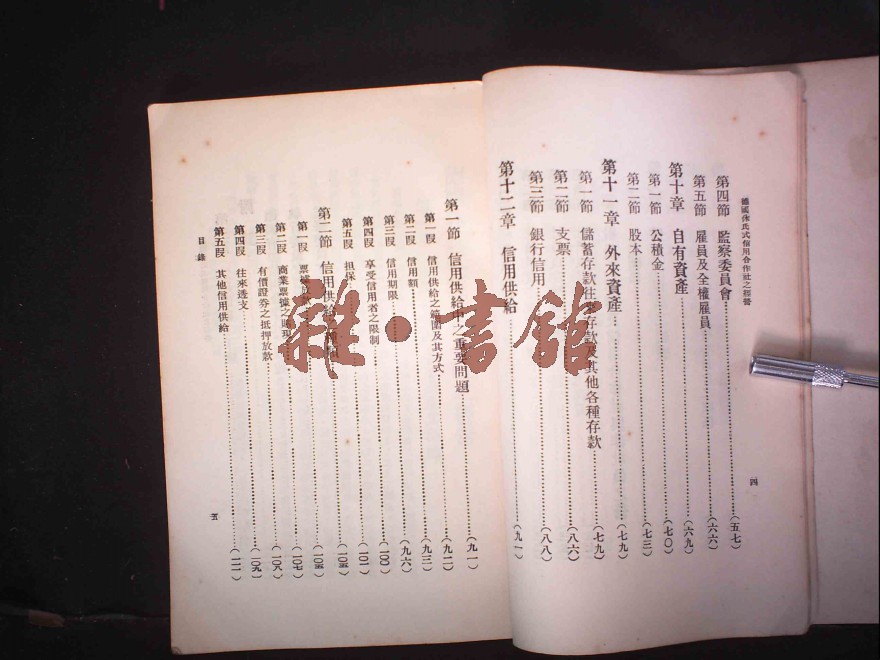 德國休氏式信用合作社之經營
第四節 監察委員會……(五七)
第五節 雇員及全權雇員……(六六)
第十章 自有資產……(六九)
第一節 公積金……(七〇)
第二節 股本……(七三)
第十一章 外來資產……(七九)
第一節 儲蓄存款往來存款及其他各種存款……(七九)
第二節 支票……(八六)
第三節 銀行信用……(八八)
第十二章 信用供給……(九一)
四
第一節 信用供給中之重要問題……(九一)
第一段 信用供給之範圍及其方式……(九二)
第二段 信用額……(九三)
第三段 信用期限……(九六)
第四段 享受信用者之限制……(一〇〇)
第五段 担保……(一〇一)
第二節 信用供給
第一段 票據
第二段 商業票據之貼現……(一〇七)
第三段 有價證券之抵押放款……(一〇八)
第四段 往來透支……(一〇九)
第五段 其他信用供給……(一一一)
目錄
五
雜·書館